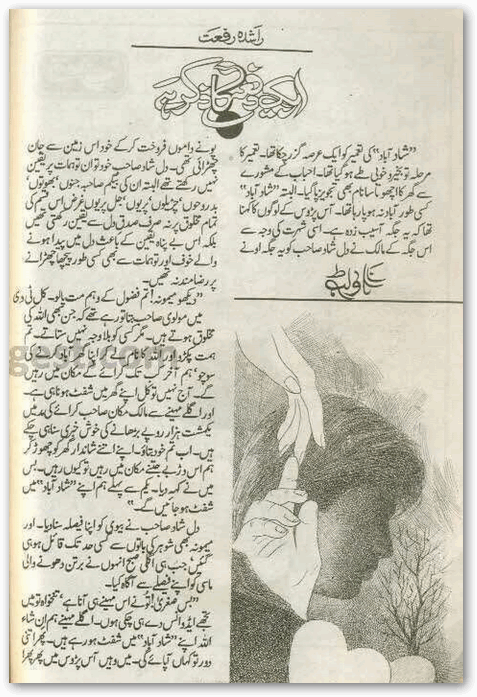 راشدہ رفعت
ایک دفعہ کا ذکر ہے
”شاد آباد“ کی تعمیر کو ایک عرصہ گزر چکا تھا۔ تعمیر کا
مرحلہ تو بخیر و خوبی طے ہو گیا تھا۔ احباب کے مشورے
سے گھر کا اچھوتا سا نام بھی تجویز پا گیا۔ البتہ ”شاد آباد“
کسی طور آباد نہ ہو پا رہا تھا۔ آس پڑوس کے لوگوں کا کہنا
تھا کہ یہ جگہ آسیب زدہ ہے۔ اسی شہرت کی وجہ سے
اس جگہ کے مالک نے دل شاد صاحب کو یہ جگہ اونے
پونے داموں فروخت کر کے خود اس زمین سے جان
چھڑائی تھی۔ دل شاد صاحب خود تو ان توہمات پر یقین
نہیں رکھتے تھے البتہ ان کی بیگم صاحبہ جنوں، بھوتوں،
بدروحوں، چڑیلوں، پریوں، جل پریوں غرض اس قسم کی
تمام مخلوق پر نہ صرف صدق دل سے یقین رکھتی تھیں
بلکہ اس بے پناہ یقین کے باعث دل میں پیدا ہونے
والے خوف اور توہمات سے بھی کسی طور پیچھا چھڑانے
پر رضامند نہ تھیں۔
”دیکھو میمونہ! تم فضول کے وہم مت پالو۔ کل ٹی وی
میں مولوی صاحب بتا تو رہے تھے کہ جن بھی اللہ کی
مخلوق ہوتے ہیں۔ مگر کسی کو بلاوجہ نہیں ستاتے۔ تم
ہمت پکڑو اور اللہ کا نام لے کر اپنا گھر آباد کرنے کی
سوچو، ہم آخر کب تک کرائے کے مکان میں رہیں
گے۔ آج نہیں تو کل اپنے گھر میں شفٹ ہونا ہی ہے
اور اگلے مہینے سے مالک مکان صاحب کرائے کی مد میں
یکمشت ہزار روپے بڑھانے کی خوش خبری سنا ہی چکے
ہیں۔ اب تم خود بتاؤ۔ اپنے اتنے شاندار گھر کو چھوڑ کر
ہم اس دڑبے جتنے مکان میں رہیں تو کیوں رہیں۔ بس
میں نے کہہ دیا۔ یکم سے پہلے ہم اپنے ”شاد آباد“ میں
شفٹ ہو جائیں گے۔“
دل شاد صاحب نے بیوی کو اپنا فیصلہ سنا دیا۔ اور
میمونہ بھی شوہر کی باتوں سے کسی حد تک قائل ہو ہی
گئیں جب ہی اگلی صبح انہوں نے برتن دھونے والی
ماسی کو اپنے فیصلے سے آگاہ کیا۔
”بس صغریٰ! تو نے اس مہینے ہی آنا ہے، تنخواہ تو میں
تجھے ایڈوانس دے ہی چکی ہوں۔ اگلے مہینے ہم ان شاء
اللہ اپنے ”شاد آباد“ میں شفٹ ہو رہے ہیں۔ پھر اتنی
دور تو کہاں آ پائے گی۔ میں وہیں آس پڑوس میں پھر پھرا